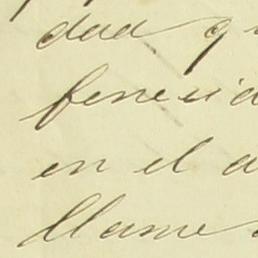 dad q
fenecid
en el a
llame